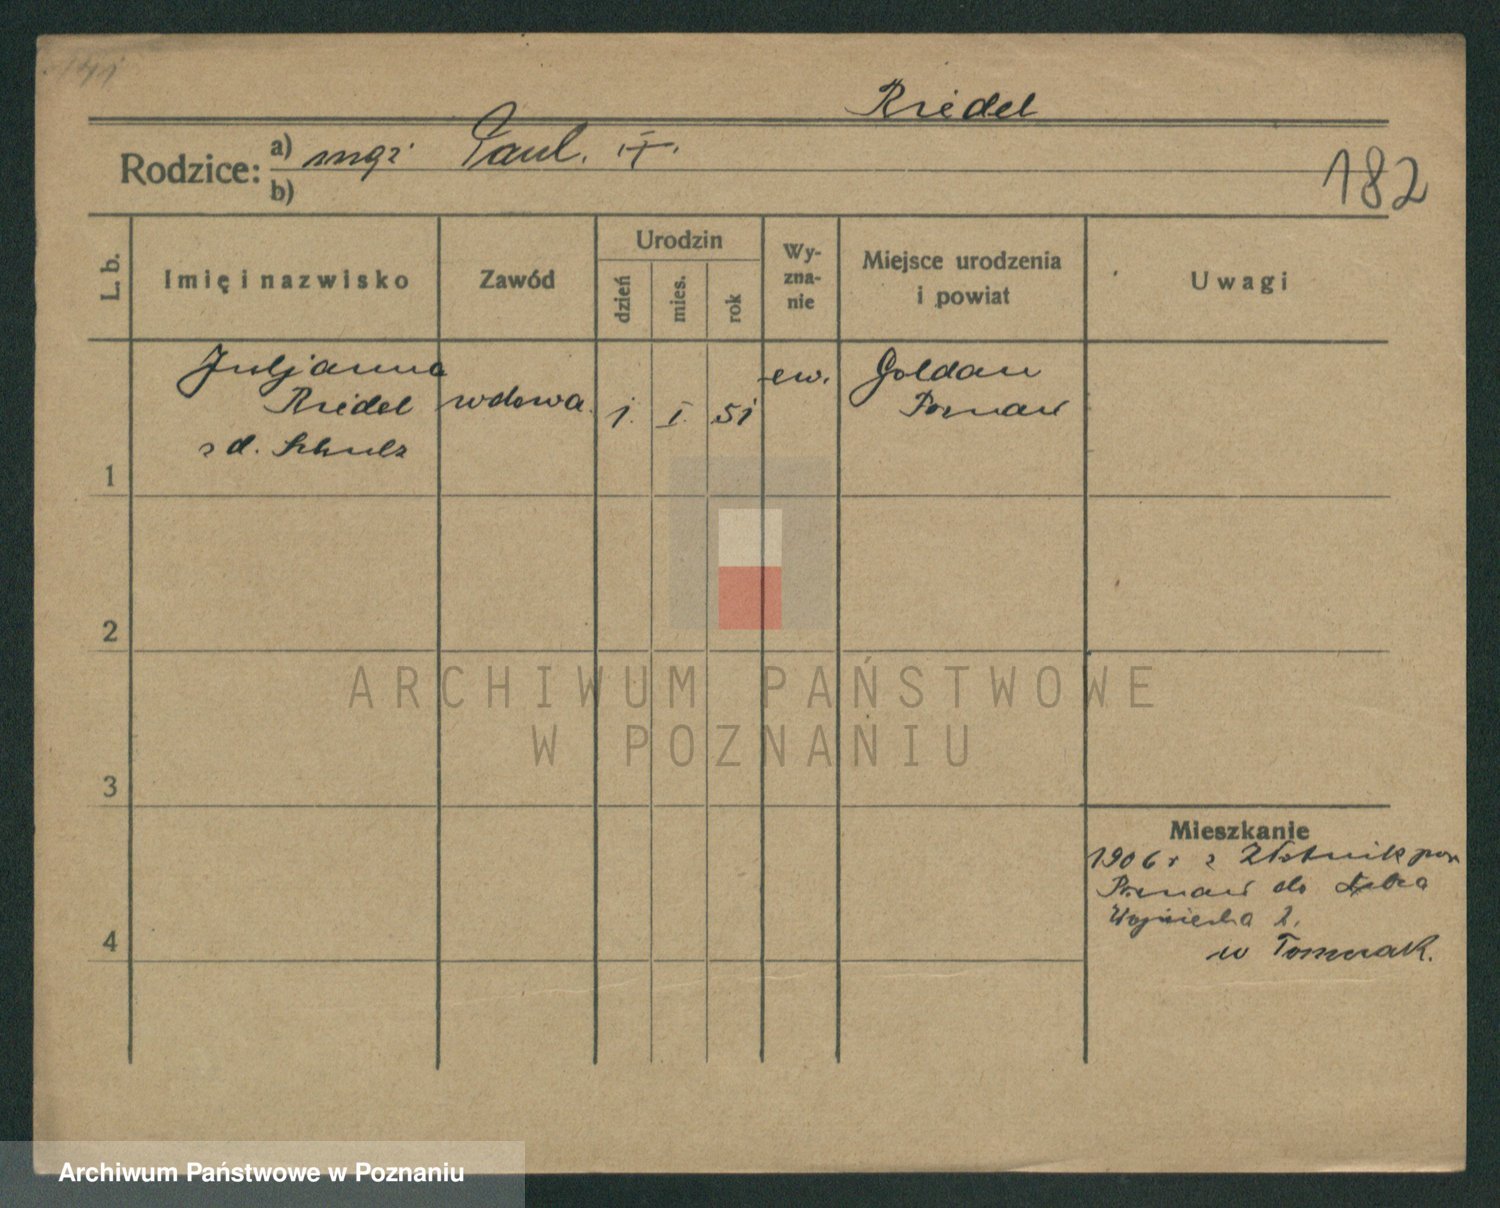 Riedel
Rodzice: a) mąż Paul. +.
b)
182
L. b.
Imię i nazwisko
Zawód
Urodzin
dzień
mies.
rok
Wy-
zna-
nie
Miejsce urodzenia
i powiat
Uwagi
Juljanna
Riedel
z d. Schulz
wdowa.
1. I. 51
ew.
Goldau
Poznań
1
2
3
4
Mieszkanie
1906 r z Złotnik pow
Poznań do
Wojciecha 2.
w
ARCHIWUM PAŃSTWOWE
W POZNANIU
Archiwum Państwowe w Poznaniu